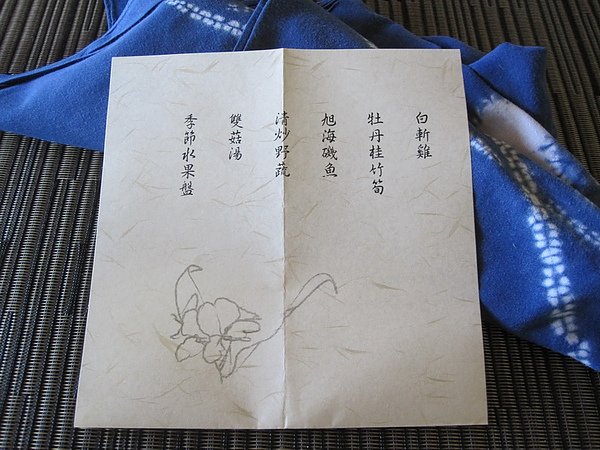 白斬雞
牡丹桂竹筍
旭海磯魚
清炒野蔬
雙菇湯
季節水果盤